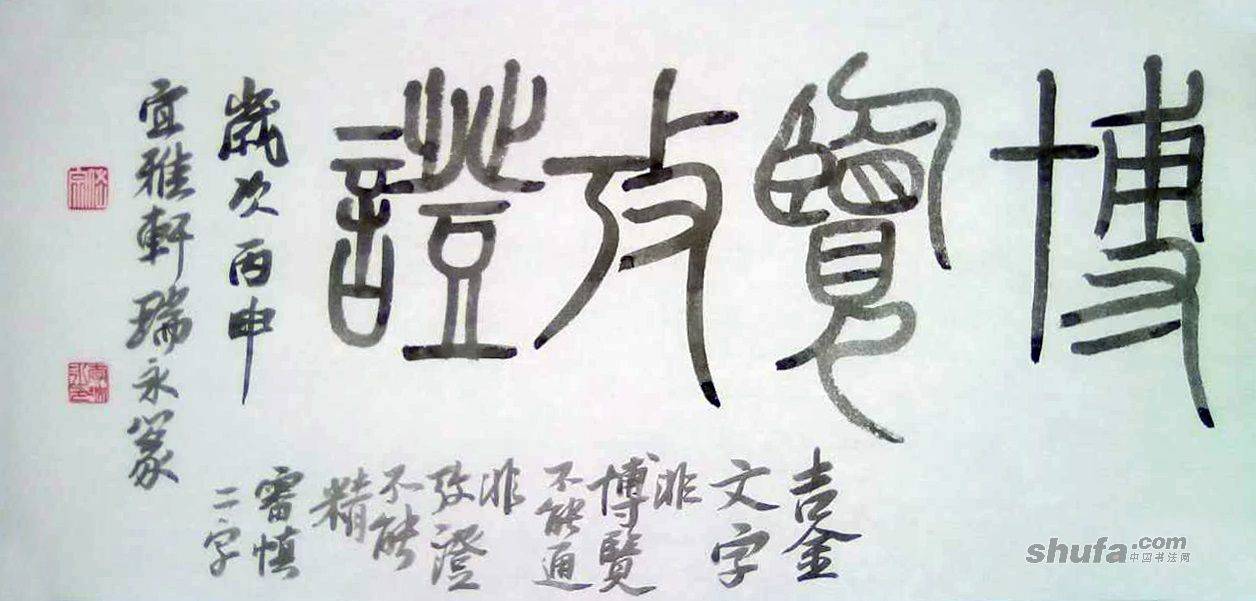 博覽攷證
吉金
文字
非
博覽
不能通
非
攷澄
不能
精
審慎
二字
歲次丙申
宜雅軒瑞永篆
shufa.com
中国书法网